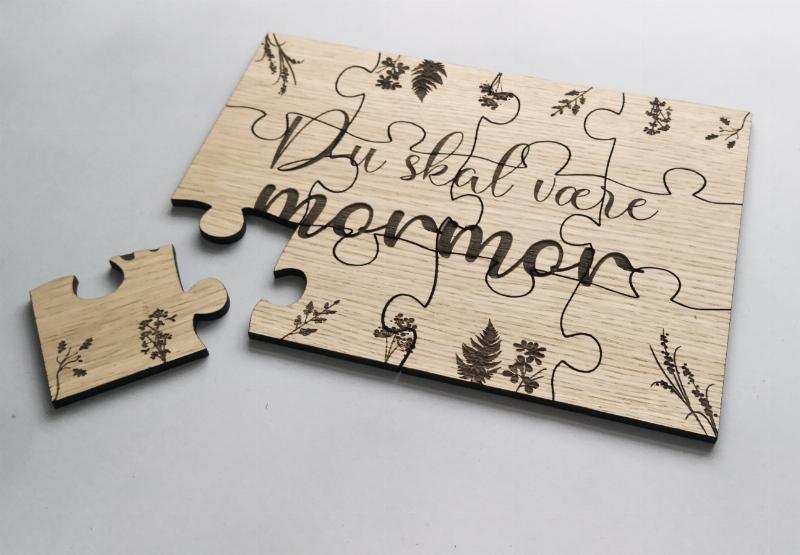 Du skal være
mormor